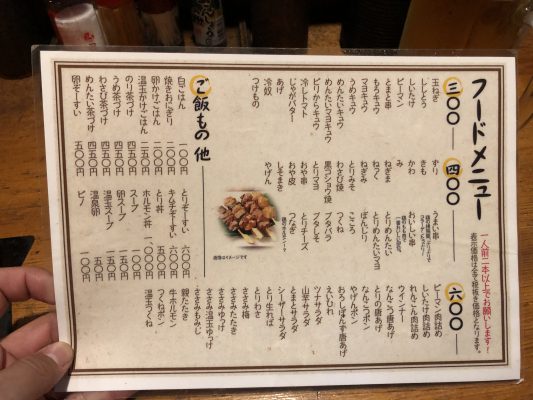 フードメニュー
一人前二本以上でお願いします!
表示価格は全て税抜き価格となります。
三〇〇
玉ねぎ
ししとう
しいたけ
ピーマン
とまと串
もろキュウ
マヨキュウ
うめキュウ
めんたいキュウ
めんたいマヨキュウ
ピリからキュウ
冷しトマト
じゃがバター
あげ
冷奴
つけもの
四〇〇
ずり
きも
かわ
み
ねぎま
ねっく
ねぎみ
とりみそ
わさび焼
黒コショウ焼
とりマヨ
おや串
おや皮
しそまき
やげん
うまい串
おいしい串
とりめんたい
とりめんたいマヨ
ぼんじり
こころ
つくね
ブタバラ
ブタしそ
とりチーズ
つなぎ
六〇〇
ピーマン肉詰め
しいたけ肉詰め
れんこん肉詰め
ウィンナー
なんこつ唐あげ
とりの唐あげ
なんこつポン
やげんポン
おろしぽんず唐あげ
えいひれ
ツナサラダ
山芋サラダ
とまとサラダ
シーザーサラダ
とり生れば
とりわさ
ささみ梅
ささみたたき
ささみゆっけ
ささみ温玉ゆっけ
ささみもみじ
親たたき
牛ホルモン
つくねポン
温玉つくね
画像はイメージです
ご飯もの 他
白ごはん 一〇〇円
焼きおにぎり 二〇〇円
卵かけごはん 二五〇円
温玉かけごはん 三五〇円
のり茶づけ 四五〇円
うめ茶づけ 四五〇円
わさび茶づけ 四五〇円
めんたい茶づけ 四五〇円
卵ぞーすい 五〇〇円
とりぞーすい 六〇〇円
キムチぞーすい 六〇〇円
とり丼
ホルモン丼 一、〇〇〇円
スープ
卵スープ
温玉スープ
温泉卵
ピノ 一〇〇円